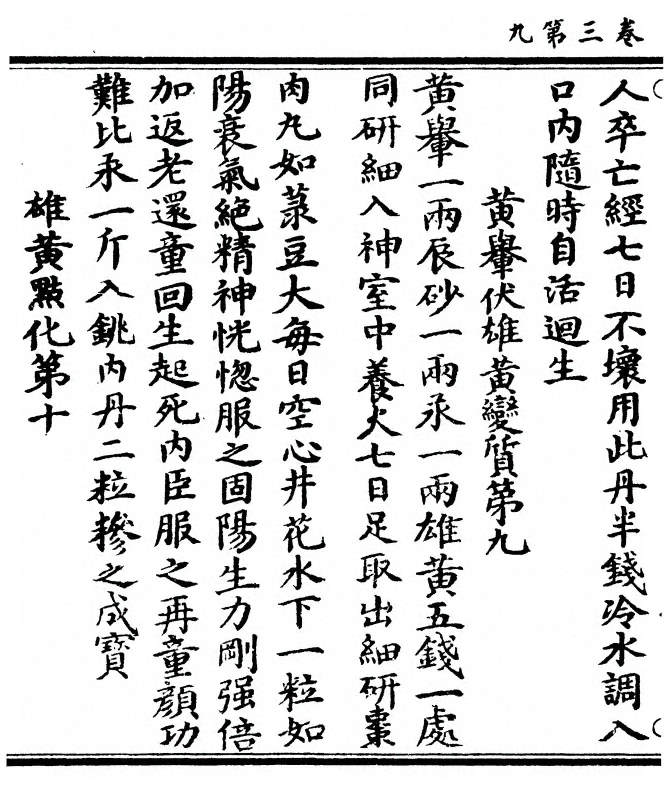 卷三第九
人卒亡經七日不壞用此丹半錢冷水調入
口內隨時自活迴生
黃轝伏雄黃變質第九
黃轝一兩辰砂一兩汞一兩雄黃五錢一處
同研細入神室中養火七日足取出細研棗
肉丸如菉豆大每日空心井花水下一粒如
陽衰氣絕精神恍惚服之固陽生力剛强倍
加返老還童回生起死內臣服之再童顏功
難比汞一斤入銚內丹二粒糝之成寶
雄黃點化第十